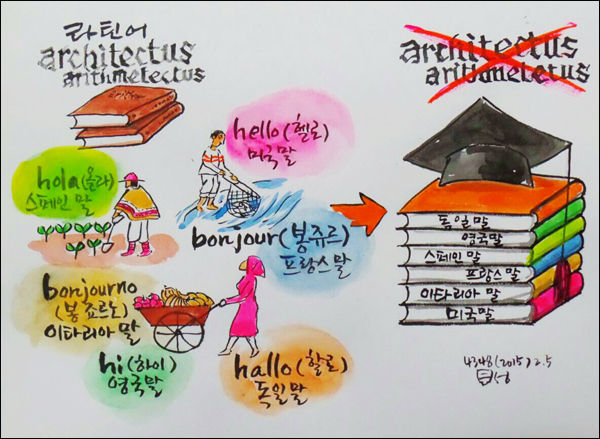 라틴어
architectus
arithmetectus
hello(헬로)
미국말
hola(올라)
스페인 말
bonjour(봉쥬르)
프랑스말
bonjourno
(봉죠르노)
이타리아 말
hi(하이)
영국말
hallo(할로)
독일말
architectus
arithmetetus
독일말
영국말
스페인 말
프랑스말
이타리아 말
미국말
4348(2015).2.5